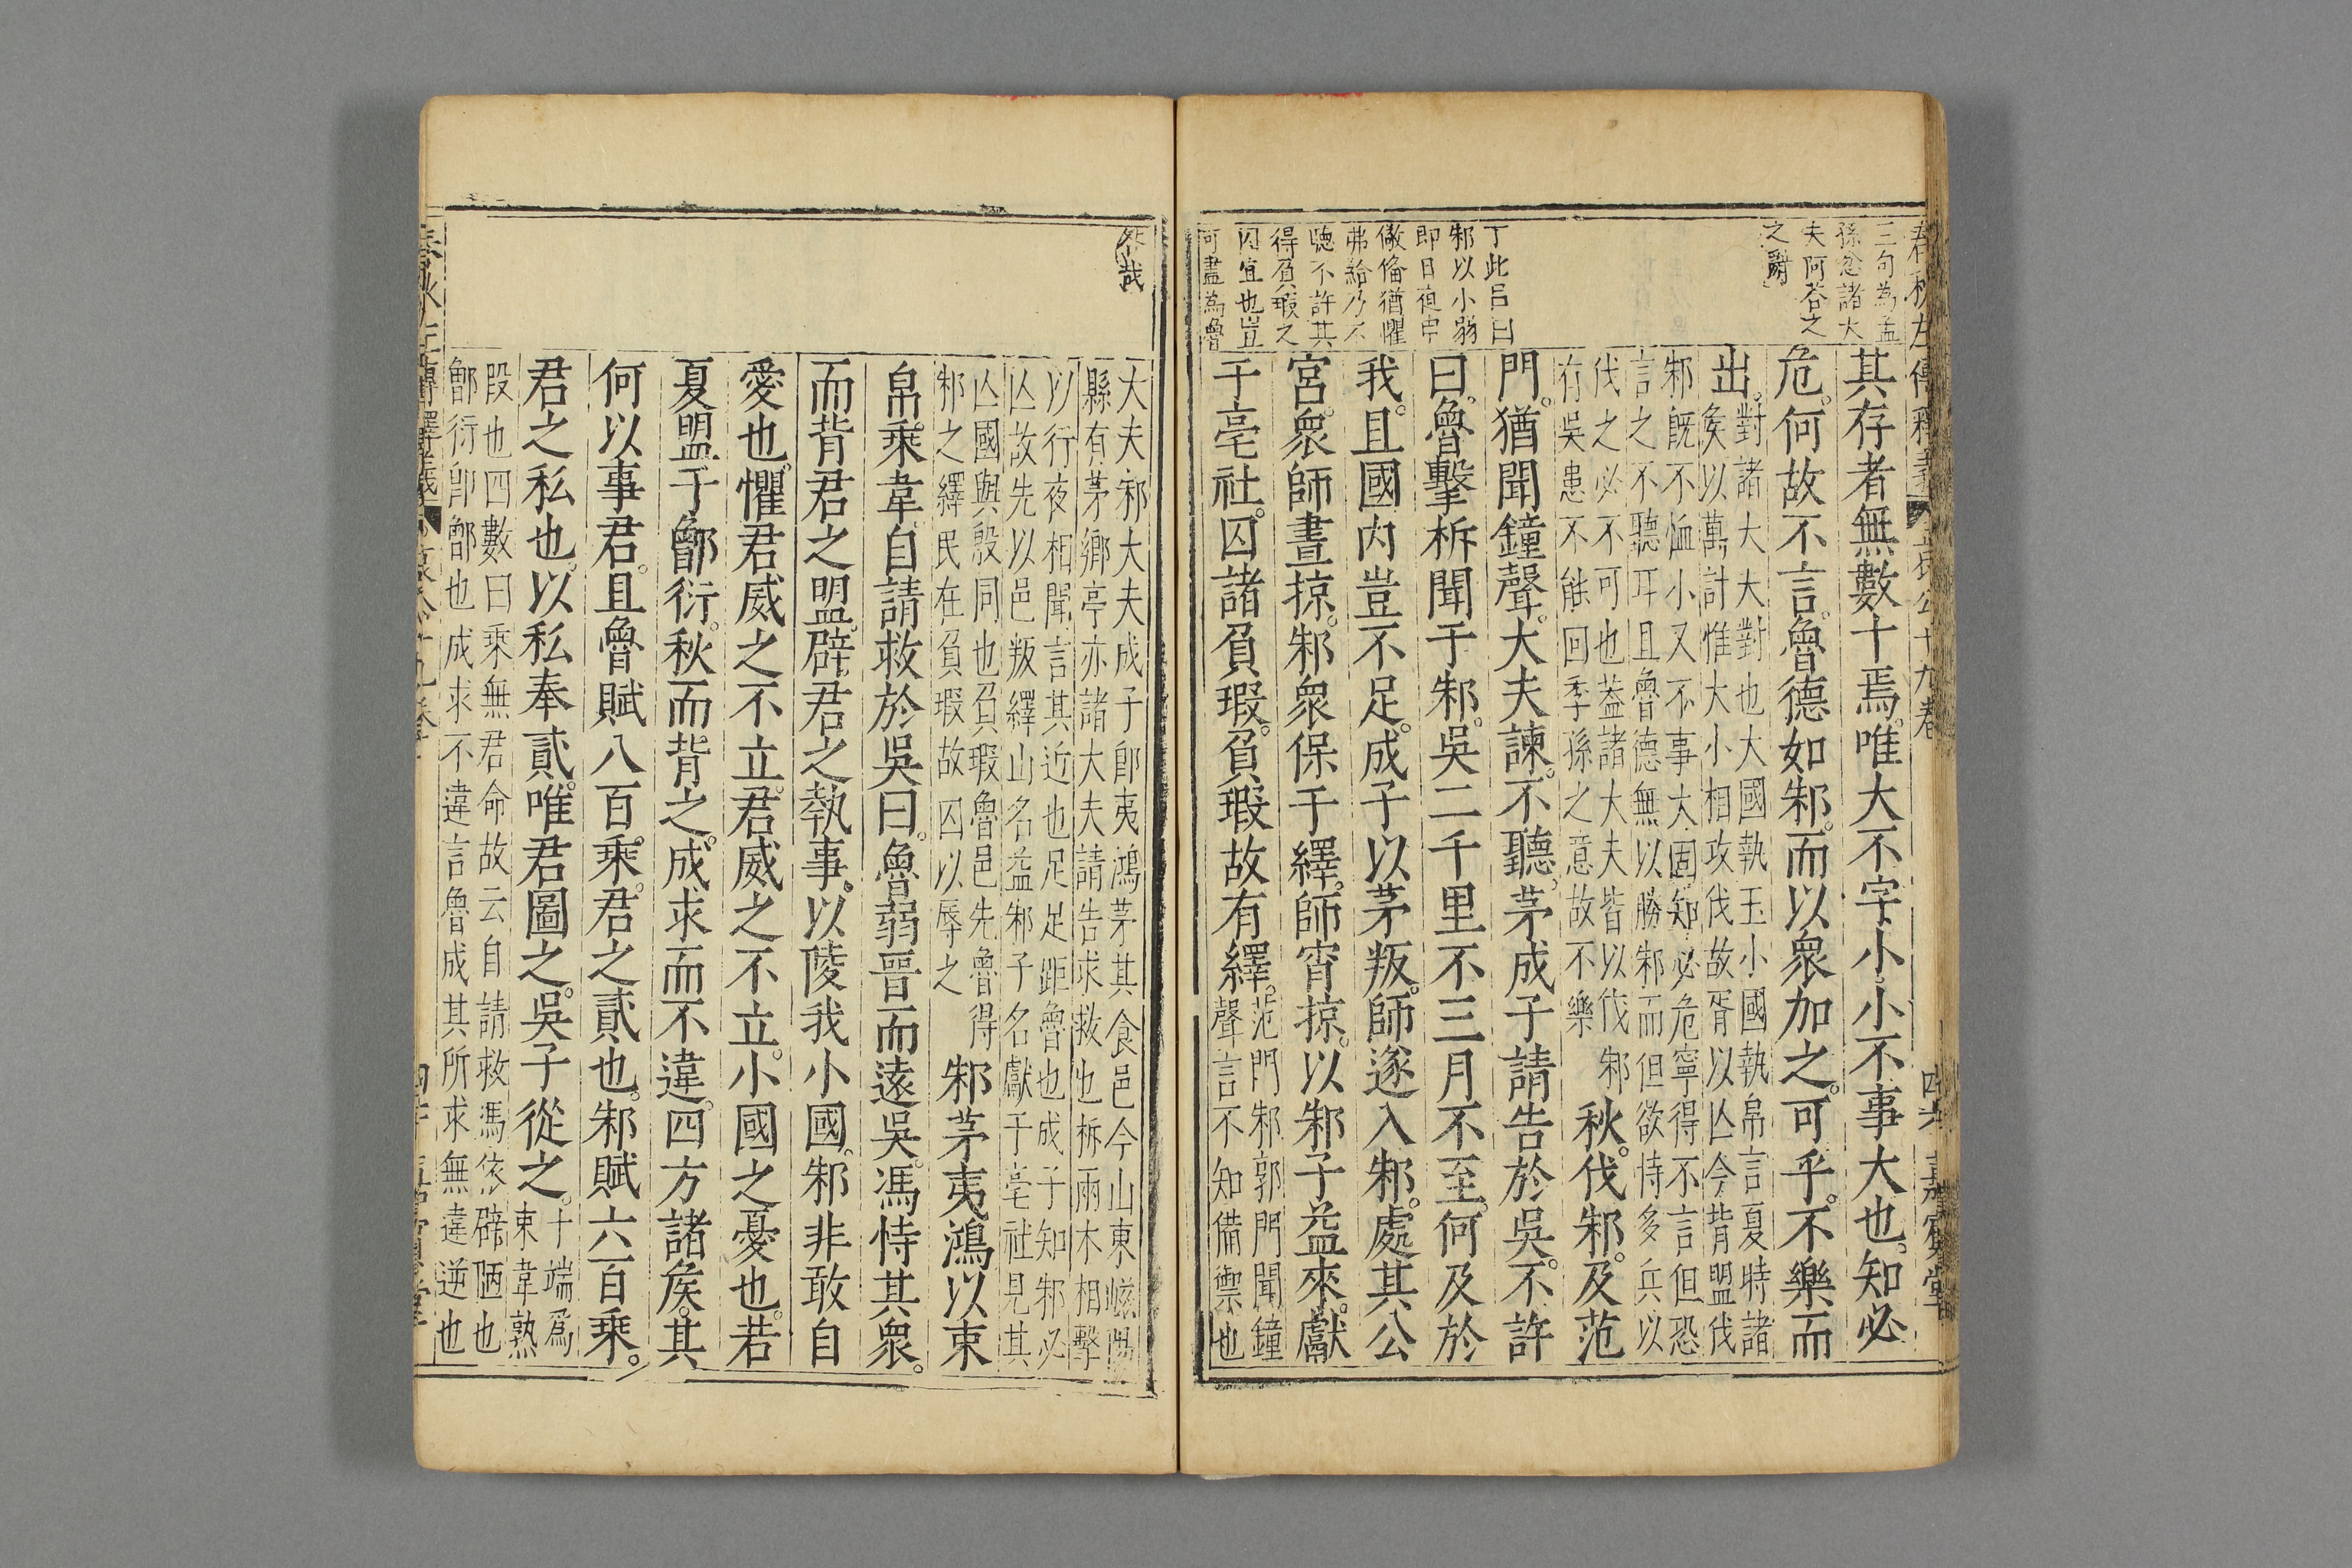 三句為孟
孫忿諸大
夫阿荅之
之辭
丁此呂曰
邾以小弱
即日夜申
儆俻猶懼
弗給乃不
聴不許其
得負瑕之
囚宜也豈
可盡為魯
其存者無數十焉。唯大不字小。小不事大也。知必
危。何故不言。魯德如邾。而以衆加之。可乎。不樂而
出。對諸大夫對也大國執玉小國執帛言夏時諸
矦以萬計惟大小相攻伐故胥以亾今背盟伐
邾旣不恤小又不事大固知必危寧得不言但恐
言之不聽耳且魯德無以勝邾而但欲恃多兵以
伐之必不可也葢諸大夫皆以伐邾
有吳患不能回季孫之意故不樂
秋。伐邾。及范
門。猶聞鐘聲。大夫諫。不聽。茅成子請告於吳。不許
曰。魯擊柝聞于邾。吳二千里。不三月不至。何及於
我。且國内豈不足。成子以茅叛。師遂入邾。處其公
宮。衆師晝掠。邾衆保于繹。師宵掠。以邾子益來。獻
于亳社。囚諸負瑕。負瑕故有繹。
范門邾郭門聞鐘
聲言不知備禦也
哉
大夫邾大夫成子卽夷鴻茅其食邑今山東
縣有茅鄉亭亦諸大夫請告求救也柝兩木相擊
以行夜相聞言其近也足足距魯也成子知邾必
亾故先以邑叛繹山名益邾子名獻于亳社見其
亾國與殷同也負瑕魯邑先魯得
邾之繹民在負瑕故囚以辱之
邾茅夷鴻以束
帛。乘韋。自請救於吳曰。魯弱晉而遠吳。馮恃其衆。
而背君之盟。辟君之執事。以陵我小國。邾非敢自
愛也。懼君威之不立。君威之不立。小國之憂也。若
夏盟于鄫衍。秋而背之。成求而不違。四方諸矦。其
何以事君。且魯賦八百乘。君之貳也。邾賦六百乘。
君之私也。以私奉貳。唯君圖之。吳子從之。
十端爲
束韋熟
段也四數曰乘無君命故云自請救馮依辟陋也
鄫衍卽鄫也成求不違言魯成其所求無違逆也